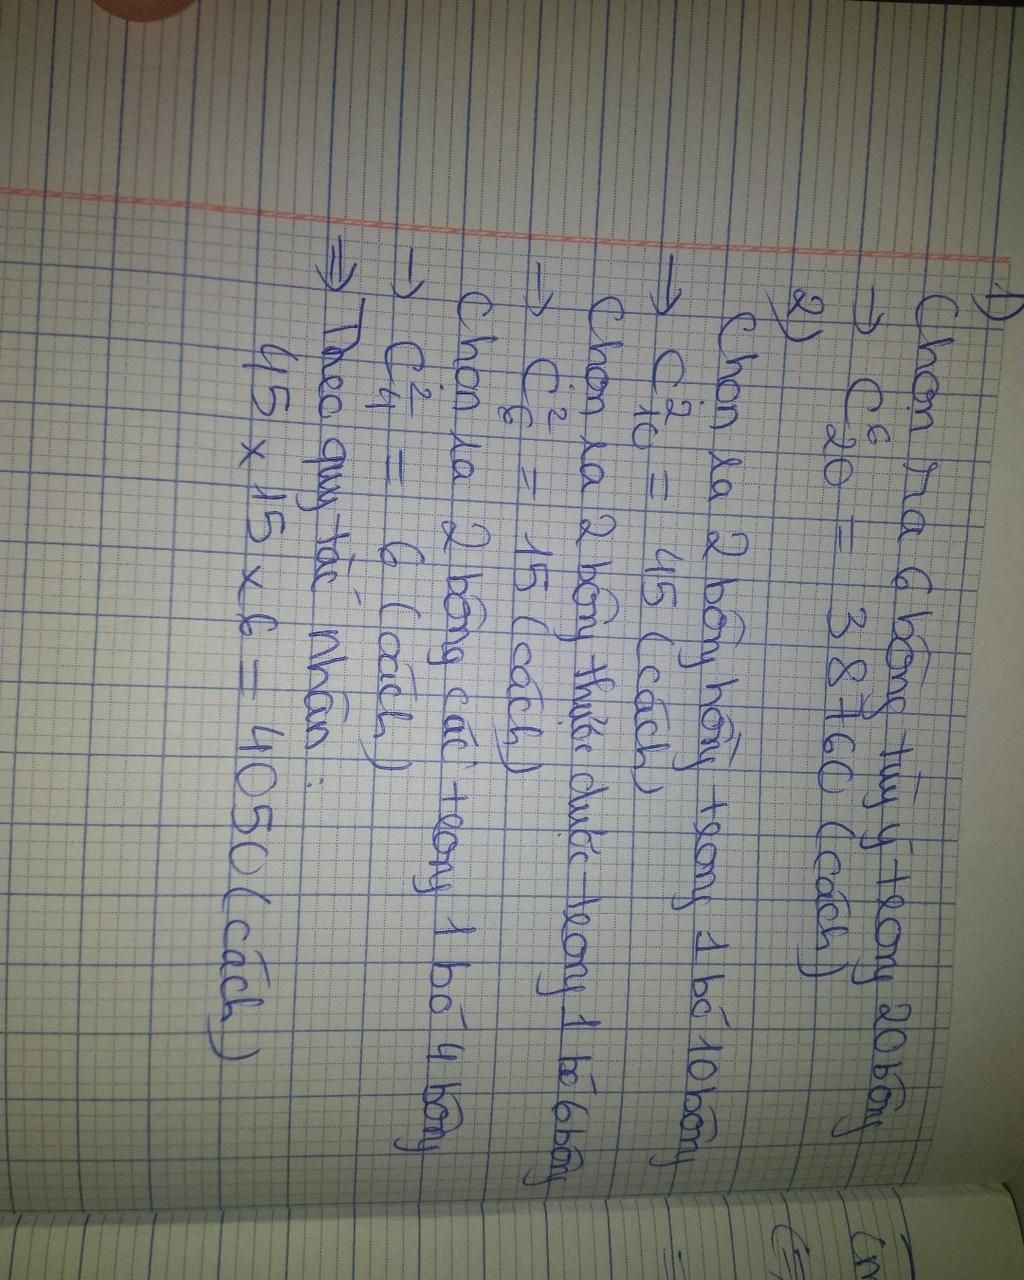 1)
Chọn ra 6 bông tùy ý trong 20 bông
→ C⁶₂₀ = 38760 (cách)
2)
Chọn ra 2 bông hồng trong 1 bó 10 bông
→ C²₁₀ = 45 (cách)
Chọn ra 2 bông thược dược trong 1 bó 6 bông
→ C²₆ = 15 (cách)
Chọn ra 2 bông cúc trong 1 bó 4 bông
→ C²₄ = 6 (cách)
⇒ Theo quy tắc nhân:
45 x 15 x 6 = 4050 (cách)